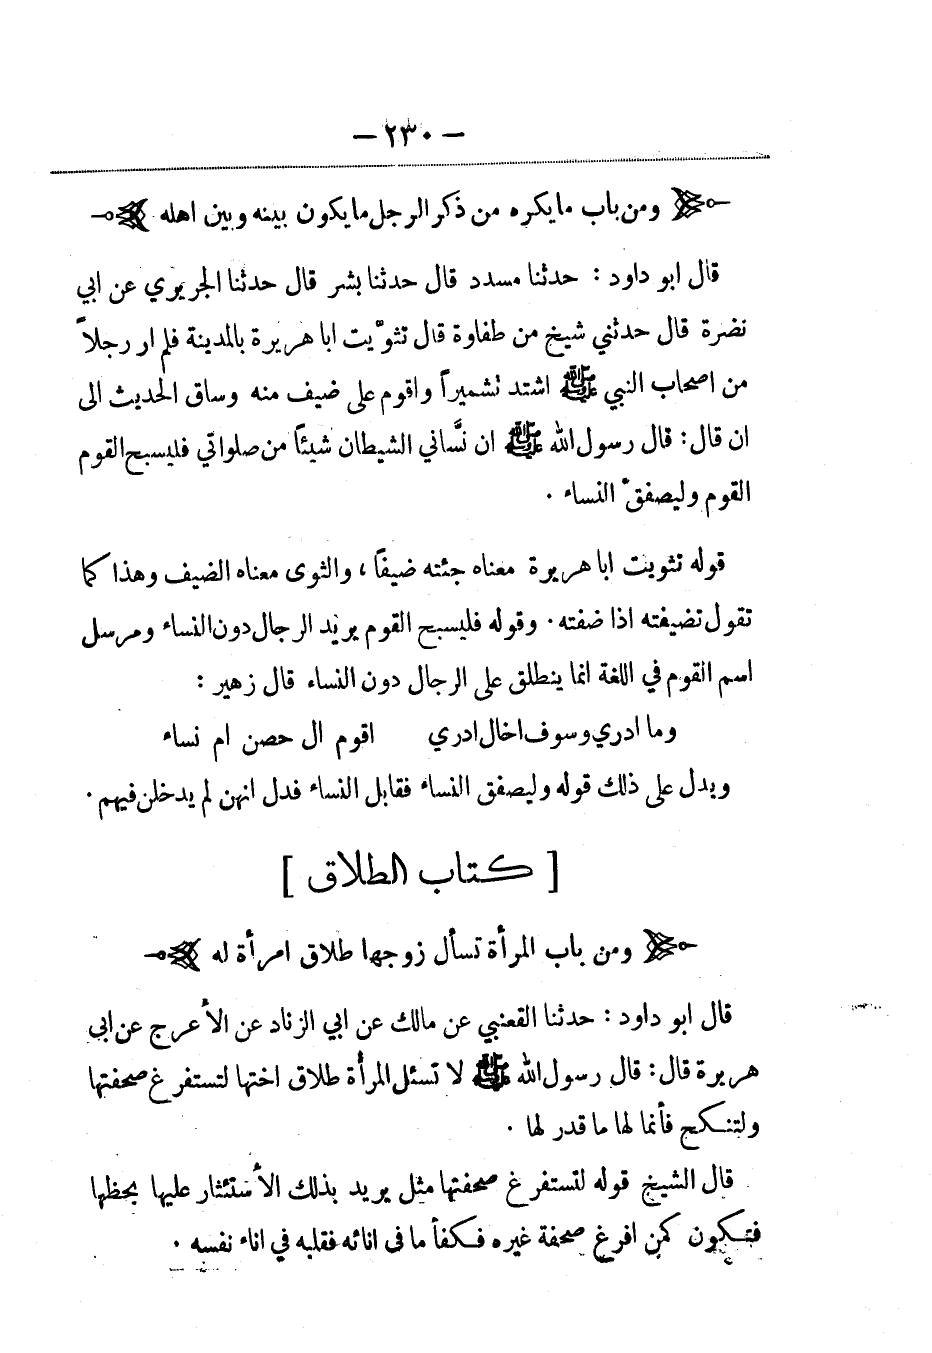 — ٢٣٠ —
ومن باب ما يكره من ذكر الرجل ما يكون بينه وبين اهله
قال ابو داود : حدثنا مسدد قال حدثنا بشر قال حدثنا الجريري عن ابي
نضرة قال حدثني شيخ من طفاوة قال تثوّيت ابا هريرة بالمدينة فلم ار رجلاً
من اصحاب النبي ﷺ اشتد تشميراً واقوم على ضيف منه وساق الحديث الى
ان قال : قال رسول الله ﷺ ان نسَّاني الشيطان شيئاً من صلواتي فليسبح القوم
القوم وليصفق النساء .
قوله تثويت ابا هريرة معناه جئته ضيفاً ، والثوى معناه الضيف وهذا كما
تقول تضيفته اذا ضفته . وقوله فليسبح القوم يريد الرجال دون النساء ومرسل
اسم القوم في اللغة انما ينطلق على الرجال دون النساء قال زهير :
وما ادري وسوف اخال ادري اقوم ال حصن ام نساء
ويدل على ذلك قوله وليصفق النساء فقابل النساء فدل انهن لم يدخلن فيهم .
[ كتاب الطلاق ]
ومن باب المرأة تسأل زوجها طلاق امرأة له
قال ابو داود : حدثنا القعنبي عن مالك عن ابي الزناد عن الأعرج عن ابى
هريرة قال : قال رسول الله ﷺ لا تسئل المرأة طلاق اختها لتستفرغ صحفتها
ولتنكح فأنما لها ما قدر لها .
قال الشيخ قوله لتستفرغ صحفتها مثل يريد بذلك الأستئثار عليها بحظها
فتكون كمن افرغ صحفة غيره فكفأ ما فى انائه فقلبه في اناء نفسه .